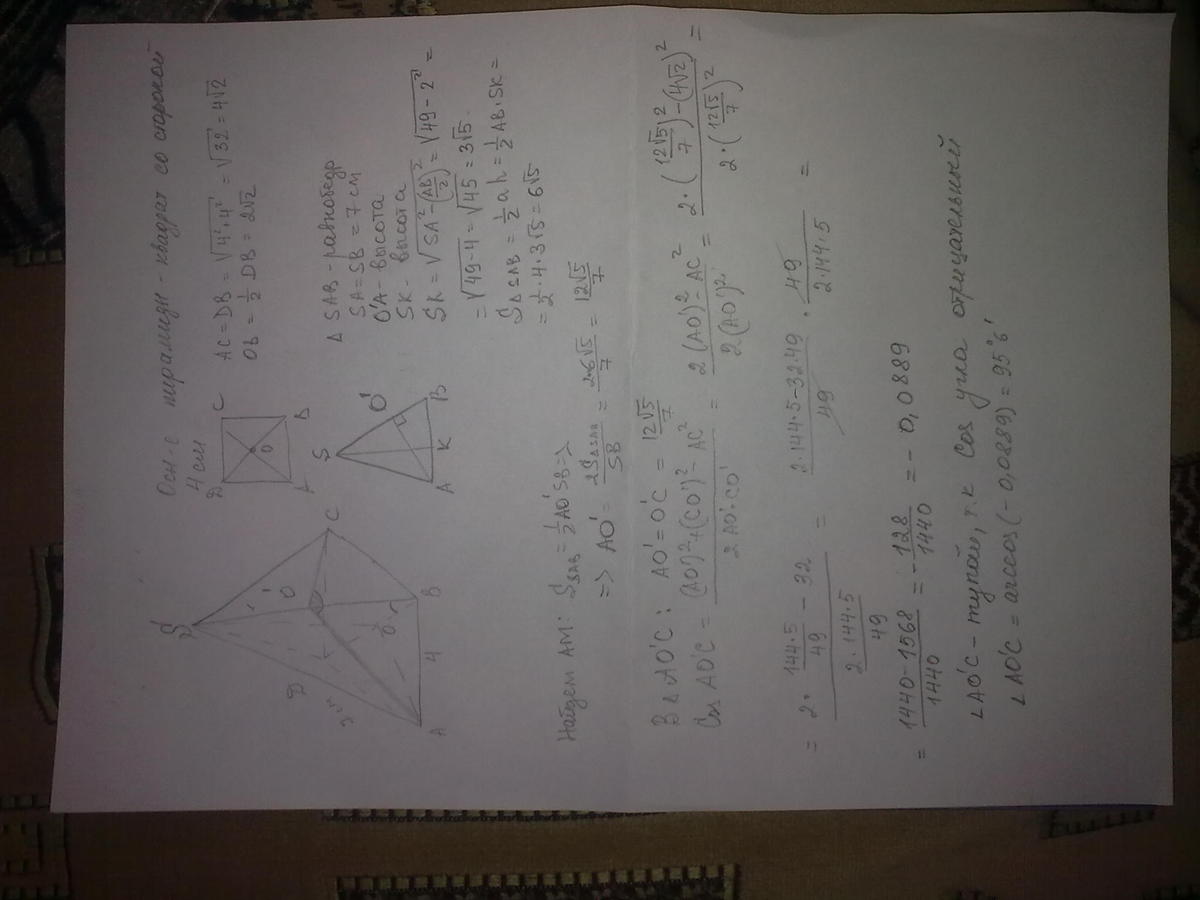 Осн-е пирамиды - квадрат со стороной
4 см
D C
A B
O
AC = DB = √4²+4² = √32 = 4√2
OB = 1/2 DB = 2√2
S
D
O
C
O'
A 4 B
7 см
S
O'
A K B
Δ SAB - равнобедр
SA = SB = 7 см
O'A - высота
SK - высота
SK = √SA² - (AB/2)² = √49 - 2² =
= √49 - 4 = √45 = 3√5.
S Δ SAB = 1/2 a h = 1/2 AB · SK =
= 1/2 · 4 · 3√5 = 6√5
Найдем AM: S ΔSAB = 1/2 AO' SB =>
=> AO' = 2S ΔSAB / SB = 2·6√5 / 7 = 12√5 / 7
В Δ AO'C : AO' = O'C = 12√5 / 7
Cos AO'C = (AO')² + (CO')² - AC² / 2 AO' · CO' = 2 (AO')² - AC² / 2 (AO')² = 2 · (12√5 / 7)² - (4√2)² / 2 · (12√5 / 7)² =
= 2 · 144·5 / 49 - 32 / 2·144·5 / 49 = 2·144·5 - 32·49 / 49 · 49 / 2·144·5 =
= 1440 - 1568 / 1440 = - 128 / 1440 = - 0,0889
∠AO'C - тупой, т.к cos угла отрицательный
∠AO'C = arccos (- 0,0889) = 95°6'